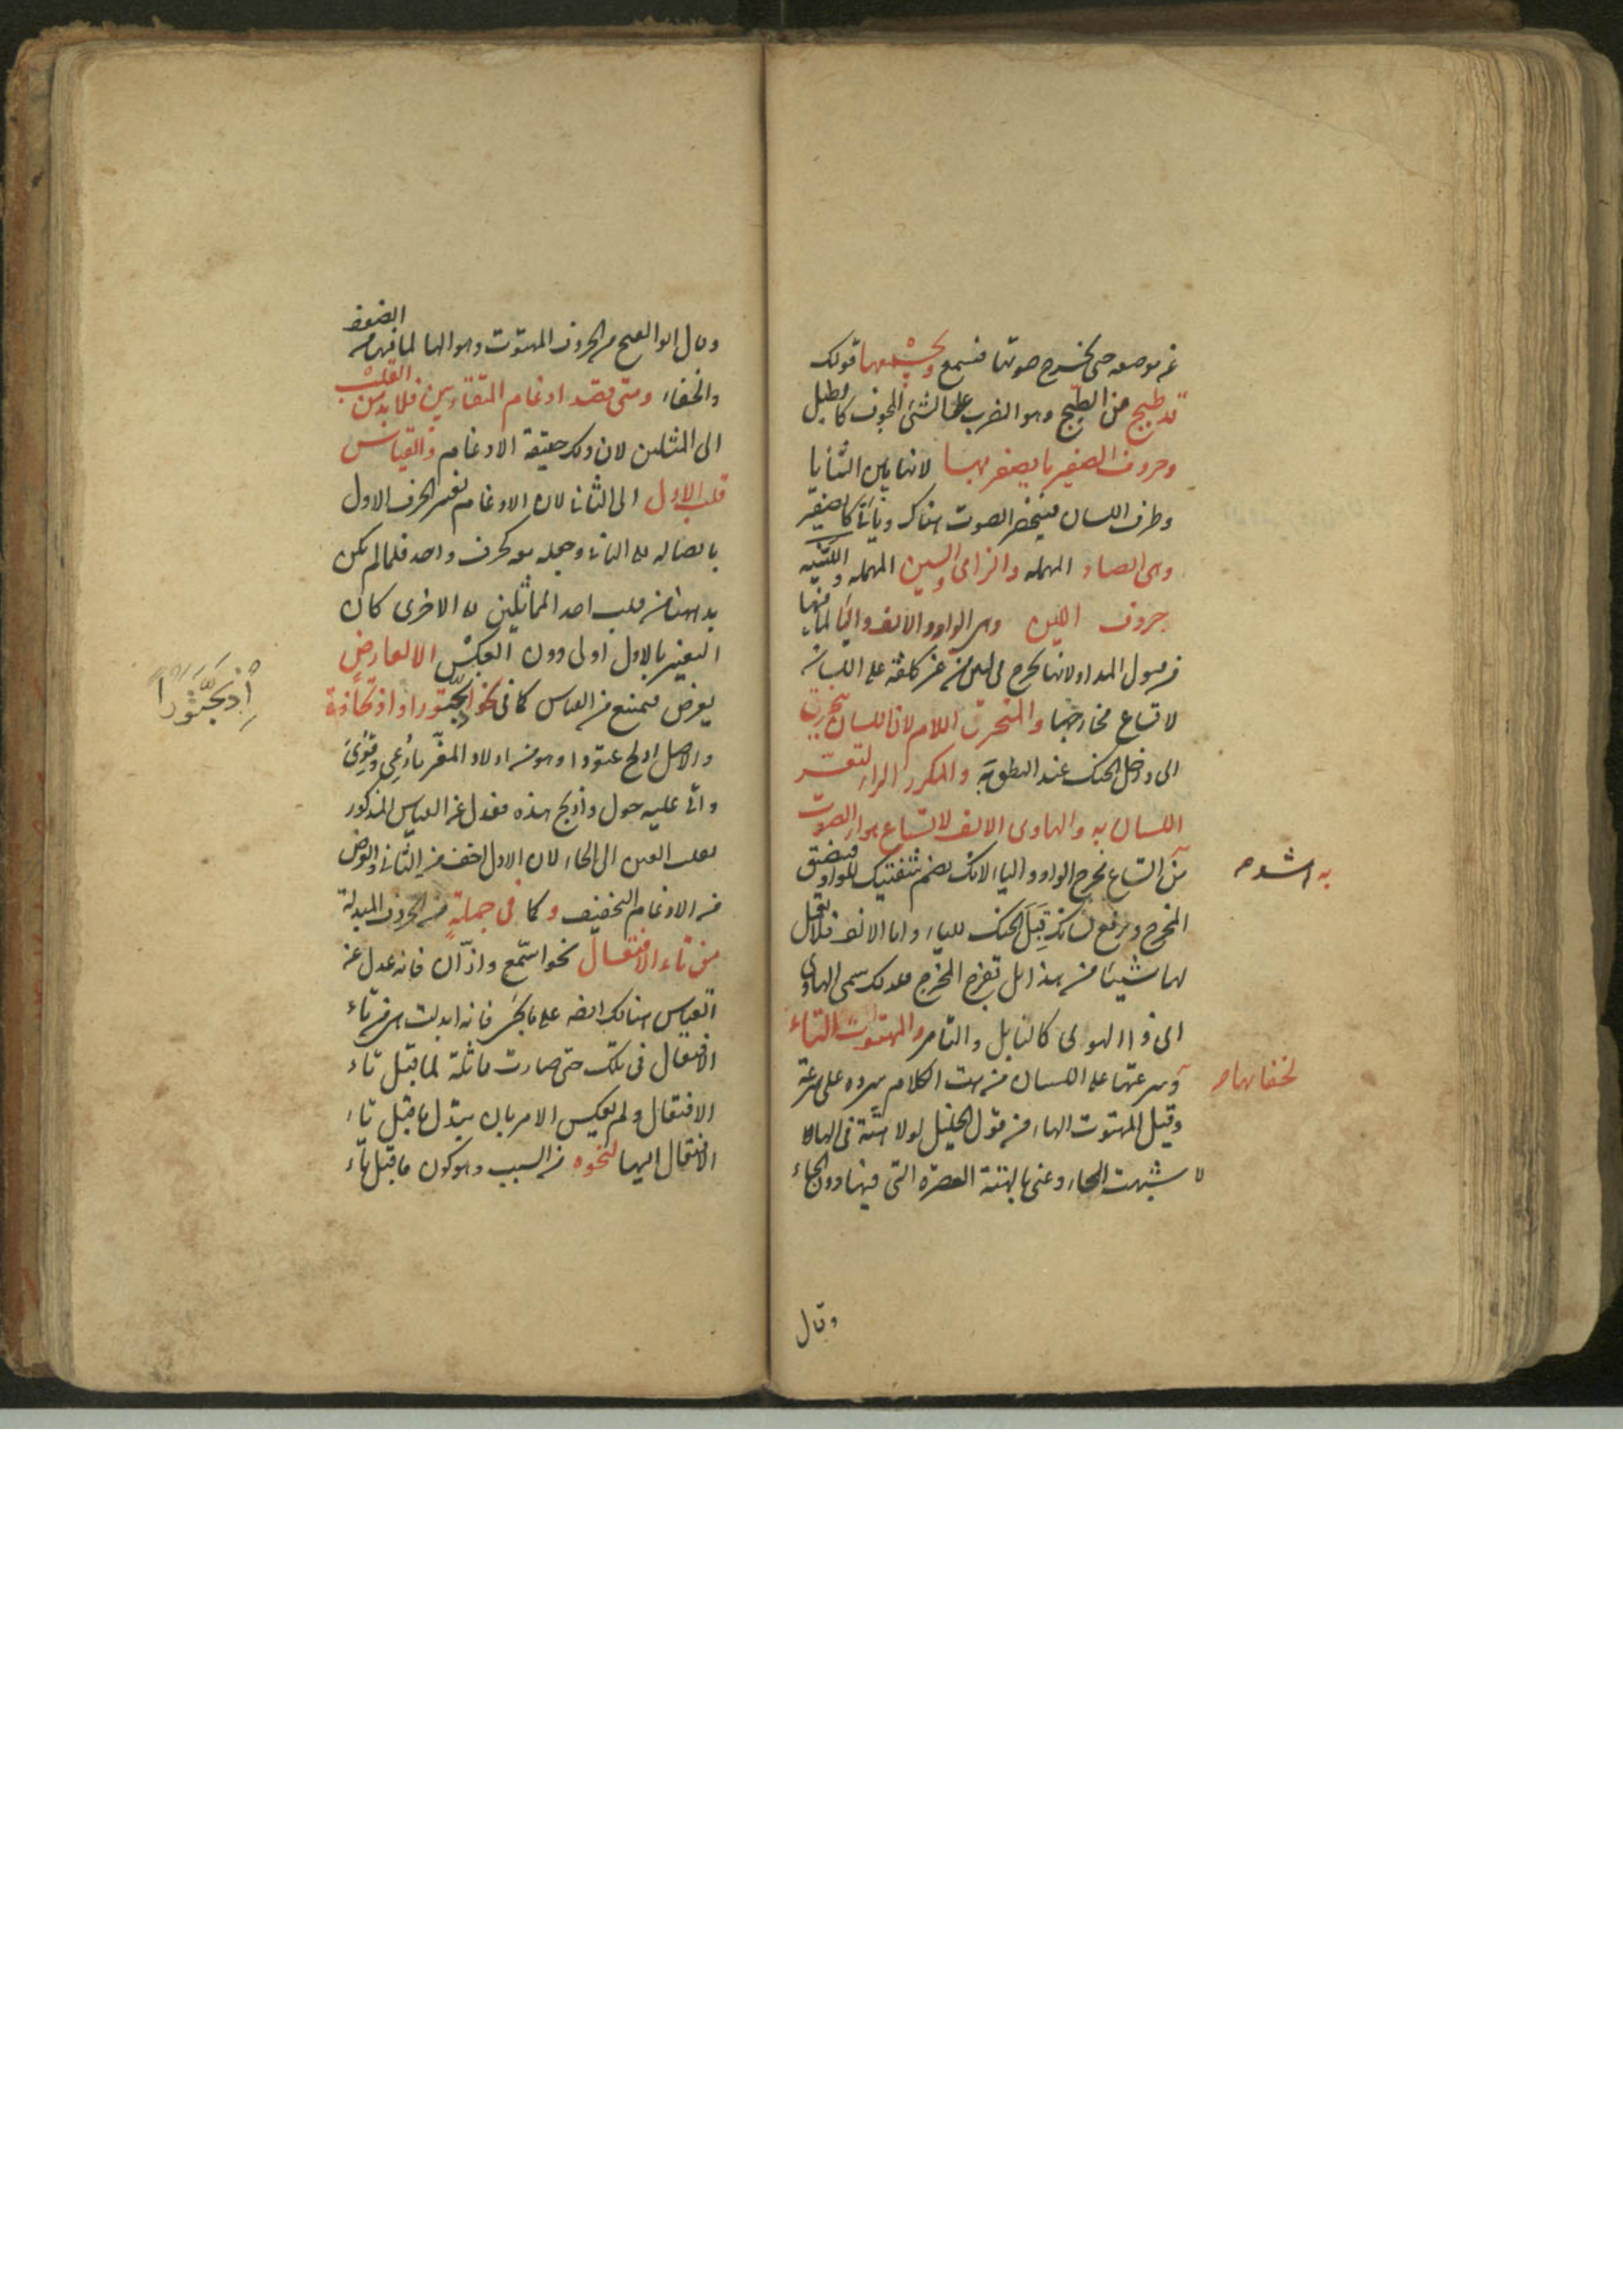 عن موضعه حتى يخرج صوتها فتسمع ويجمعها قولك
قد طبج من الطبج وهو الضرب على الشئ المجوف كالطبل
وحروف الصفير ما يصفر بها لانها بين الثنايا
وطرف اللسان فينحصر الصوت هناك ويأتي كالصفير
وهى الصاد المهمله والزاى والسين المهمله واللينه
حروف اللين وهى الواو والالف واليا لما فيها
من قبول المد او لانها تخرج فى لين من غير كلفة على اللسان
لاتساع مخارجها والمنحرف اللام لان اللسان ينحرف
الى داخل الحنك عند النطق به والمكرر الراء لتعثر
اللسان به والهاوى الالف لاتساع هواء الصوت
به اشد
من اتساع مخرج الواو واليا لانك تضم شفتيك للواو فيضيق
المخرج وترفع لسانك قِبَلَ الحنك للياء واما الالف فلا تعمل
لها شيئا من هذا بل تفرج المخرج فلذلك سمى الهاوى
اى ذو الهوى كالنابل والتامر والمهتوت التاء
لخفائها
وسرعتها على اللسان من هت الكلام سرده على سرعة
وقيل المهتوت الهاء من قول الخليل لولا هتة فى الهاء
لا شبهت الحاء وعنى بالهتة العصرة التى فيها دون الحاء
وقال
وقال ابو الفتح من الحروف المهتوت وهو الها لما فيها من الضعف
والخفاء ومتى قصد ادغام المتقاربين فلا بد من القلب
الى المثلين لان ذلك حقيقة الادغام والقياس
قلب الاول الى الثانى لان الادغام تغيير الحرف الاول
بايصاله الى الثانى وجعله معه كحرف واحد فلما لم يكن
بد هنا من قلب احد المتماثلين الى الاخرى كان
التغيير بالاول اولى دون العكس الا لعارض
يعرض فيمنع من القياس كما فى نحو اذبحّتودا واذبحّاذه
إِذْبَحَّتُّوْداً
والاصل اذبح عتودا وهو من اولاد المعز ما رعى وقوى
واتى عليه حول واذبح هذه فعدل عن القياس المذكور
بقلب العين الى الحاء لان الاول اخف من الثانى والغرض
من الادغام التخفيف وكما فى جملة من الحروف المبدلة
من تاء الافتعال نحو اسّمع واذّان فانه عدل عن
القياس هنالك ايضا على ما يجئ فانه ابدلت من تاء
الافتعال فى تلك حتى صارت مماثلة لما قبل تاء
الافتعال ولم يعكس الامر بان يبدل ما قبل تاء
الافتعال اليها لنحوه من السبب وهو كون ما قبل تاء